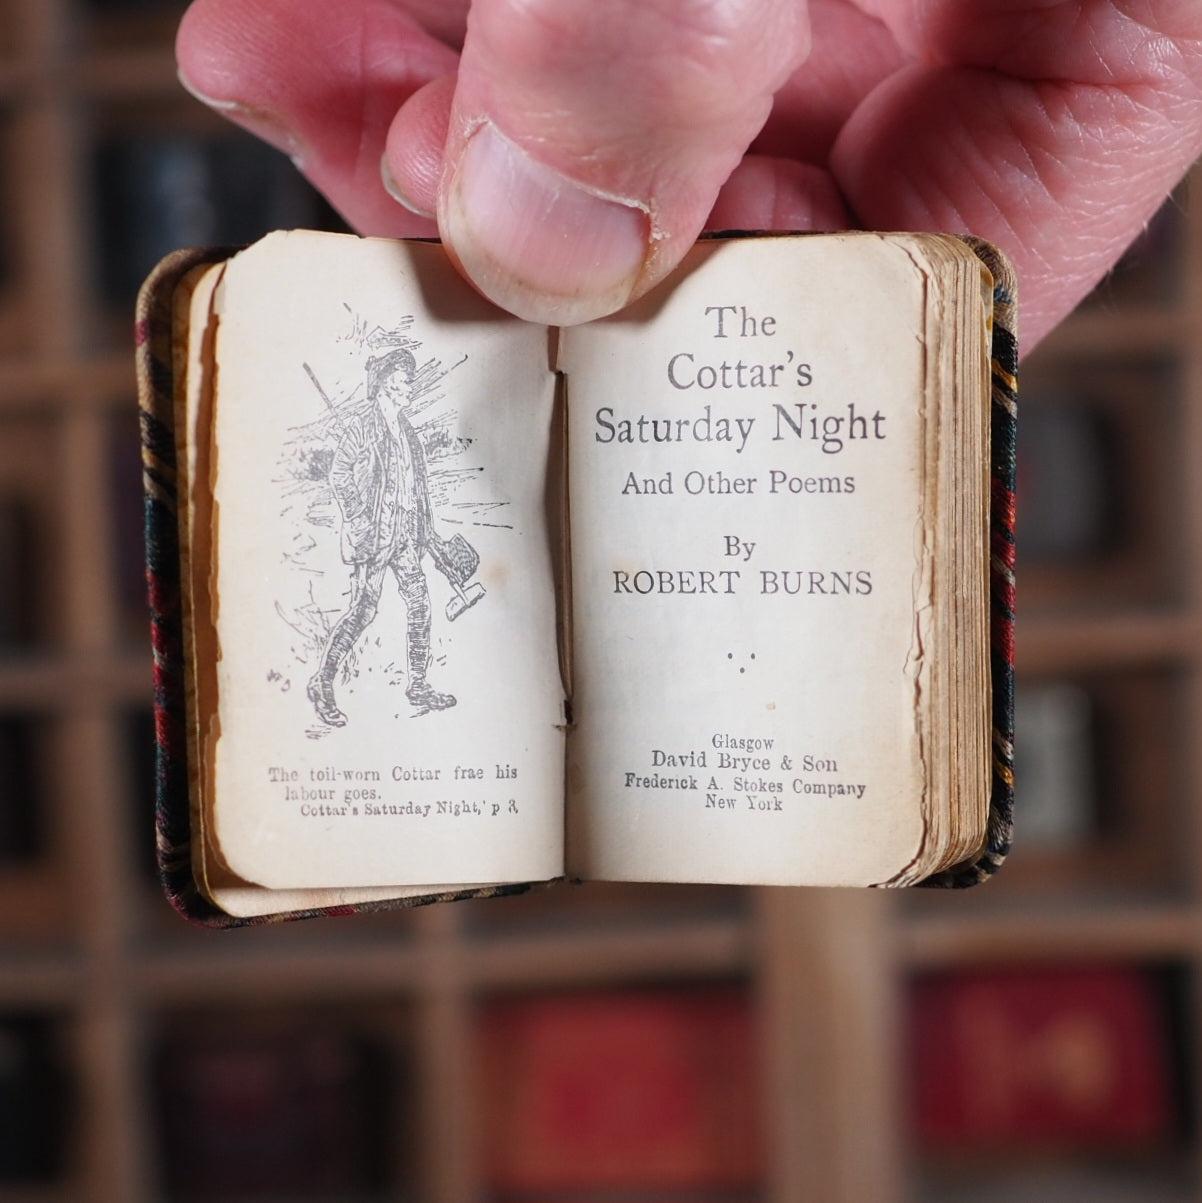 The toil-worn Cottar frae his
labour goes.
Cottar's Saturday Night,' p 3,
The
Cottar's
Saturday Night
And Other Poems
By
ROBERT BURNS
Glasgow
David Bryce & Son
Frederick A. Stokes Company
New York